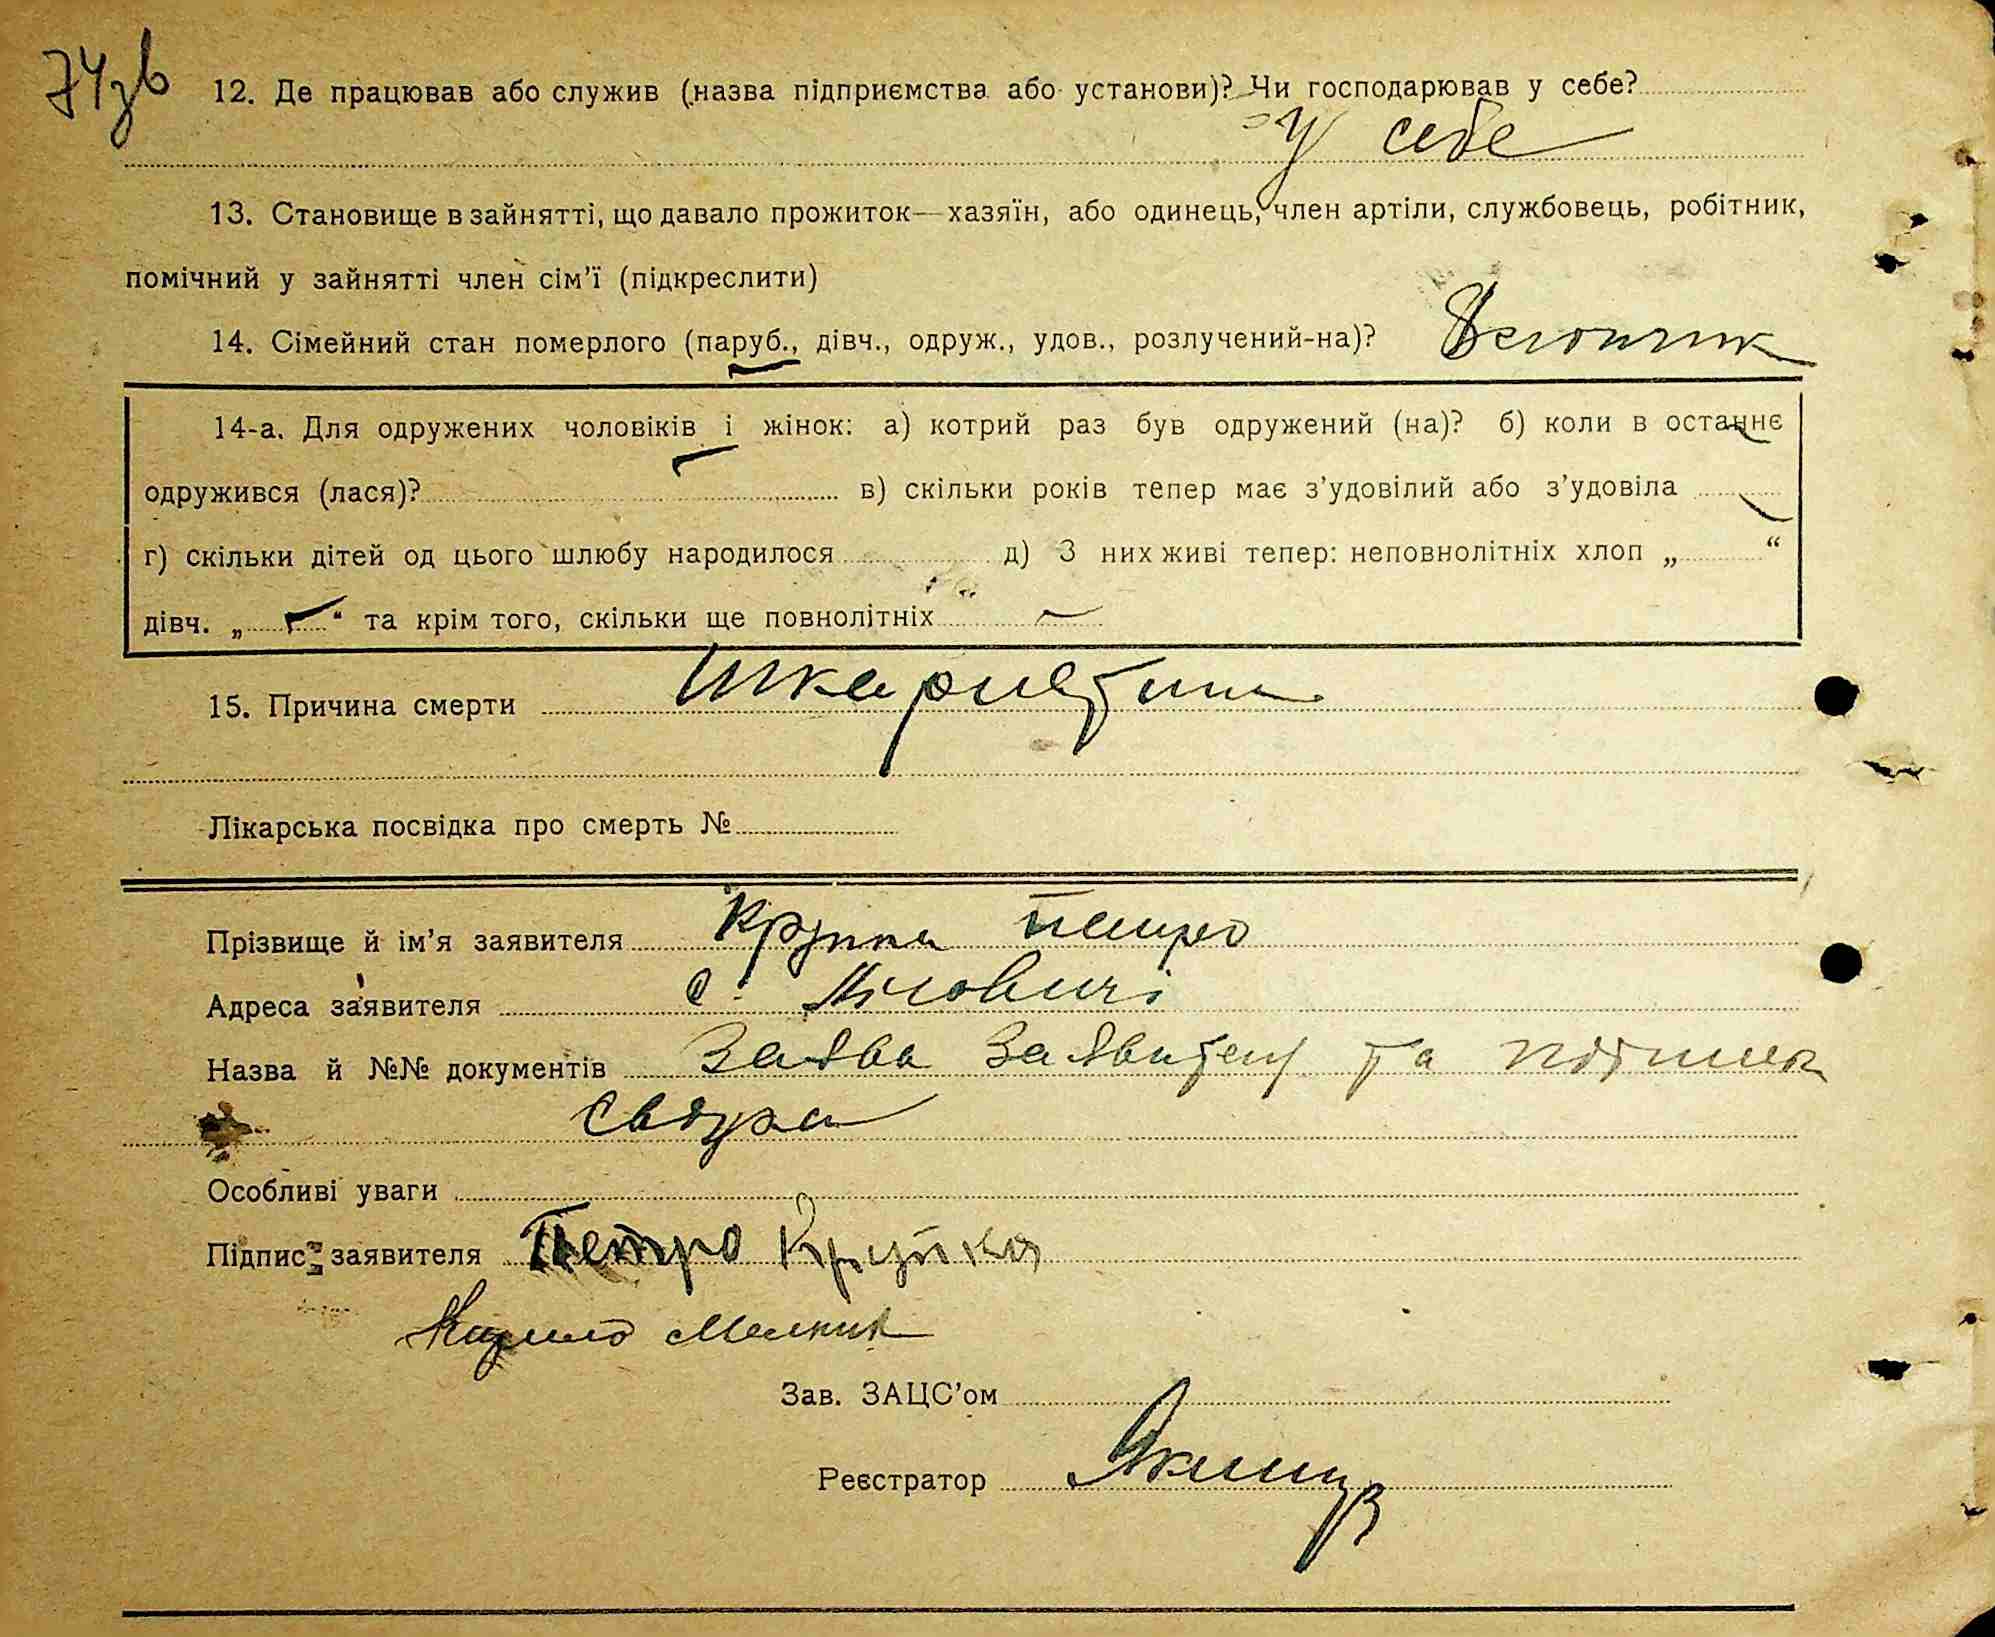 74зв
12. Де працював або служив (назва підприємства або установи)? Чи господарював у себе?
У себе
13. Становище в зайнятті, що давало прожиток—хазяїн, або одинець, член артіли, службовець, робітник,
помічний у зайнятті член сім'ї (підкреслити)
14. Сімейний стан померлого (паруб., дівч., одруж., удов., розлучений-на)?
14-а. Для одружених чоловіків і жінок: а) котрий раз був одружений (на)? б) коли в останнє
одружився (лася)? в) скільки років тепер має з'удовілий або з'удовіла
г) скільки дітей од цього шлюбу народилося д) З них живі тепер: неповнолітніх хлоп „ “
дівч. „ “ та крім того, скільки ще повнолітніх
15. Причина смерти Шкарлятина
Лікарська посвідка про смерть №
Прізвище й ім'я заявителя Крупка Петро
Адреса заявителя с.
Назва й №№ документів Заява Заявителя та
свідка
Особливі уваги
Підпис заявителя Петро Крупка
Кирило Мелник
Зав. ЗАЦС'ом
Реєстратор